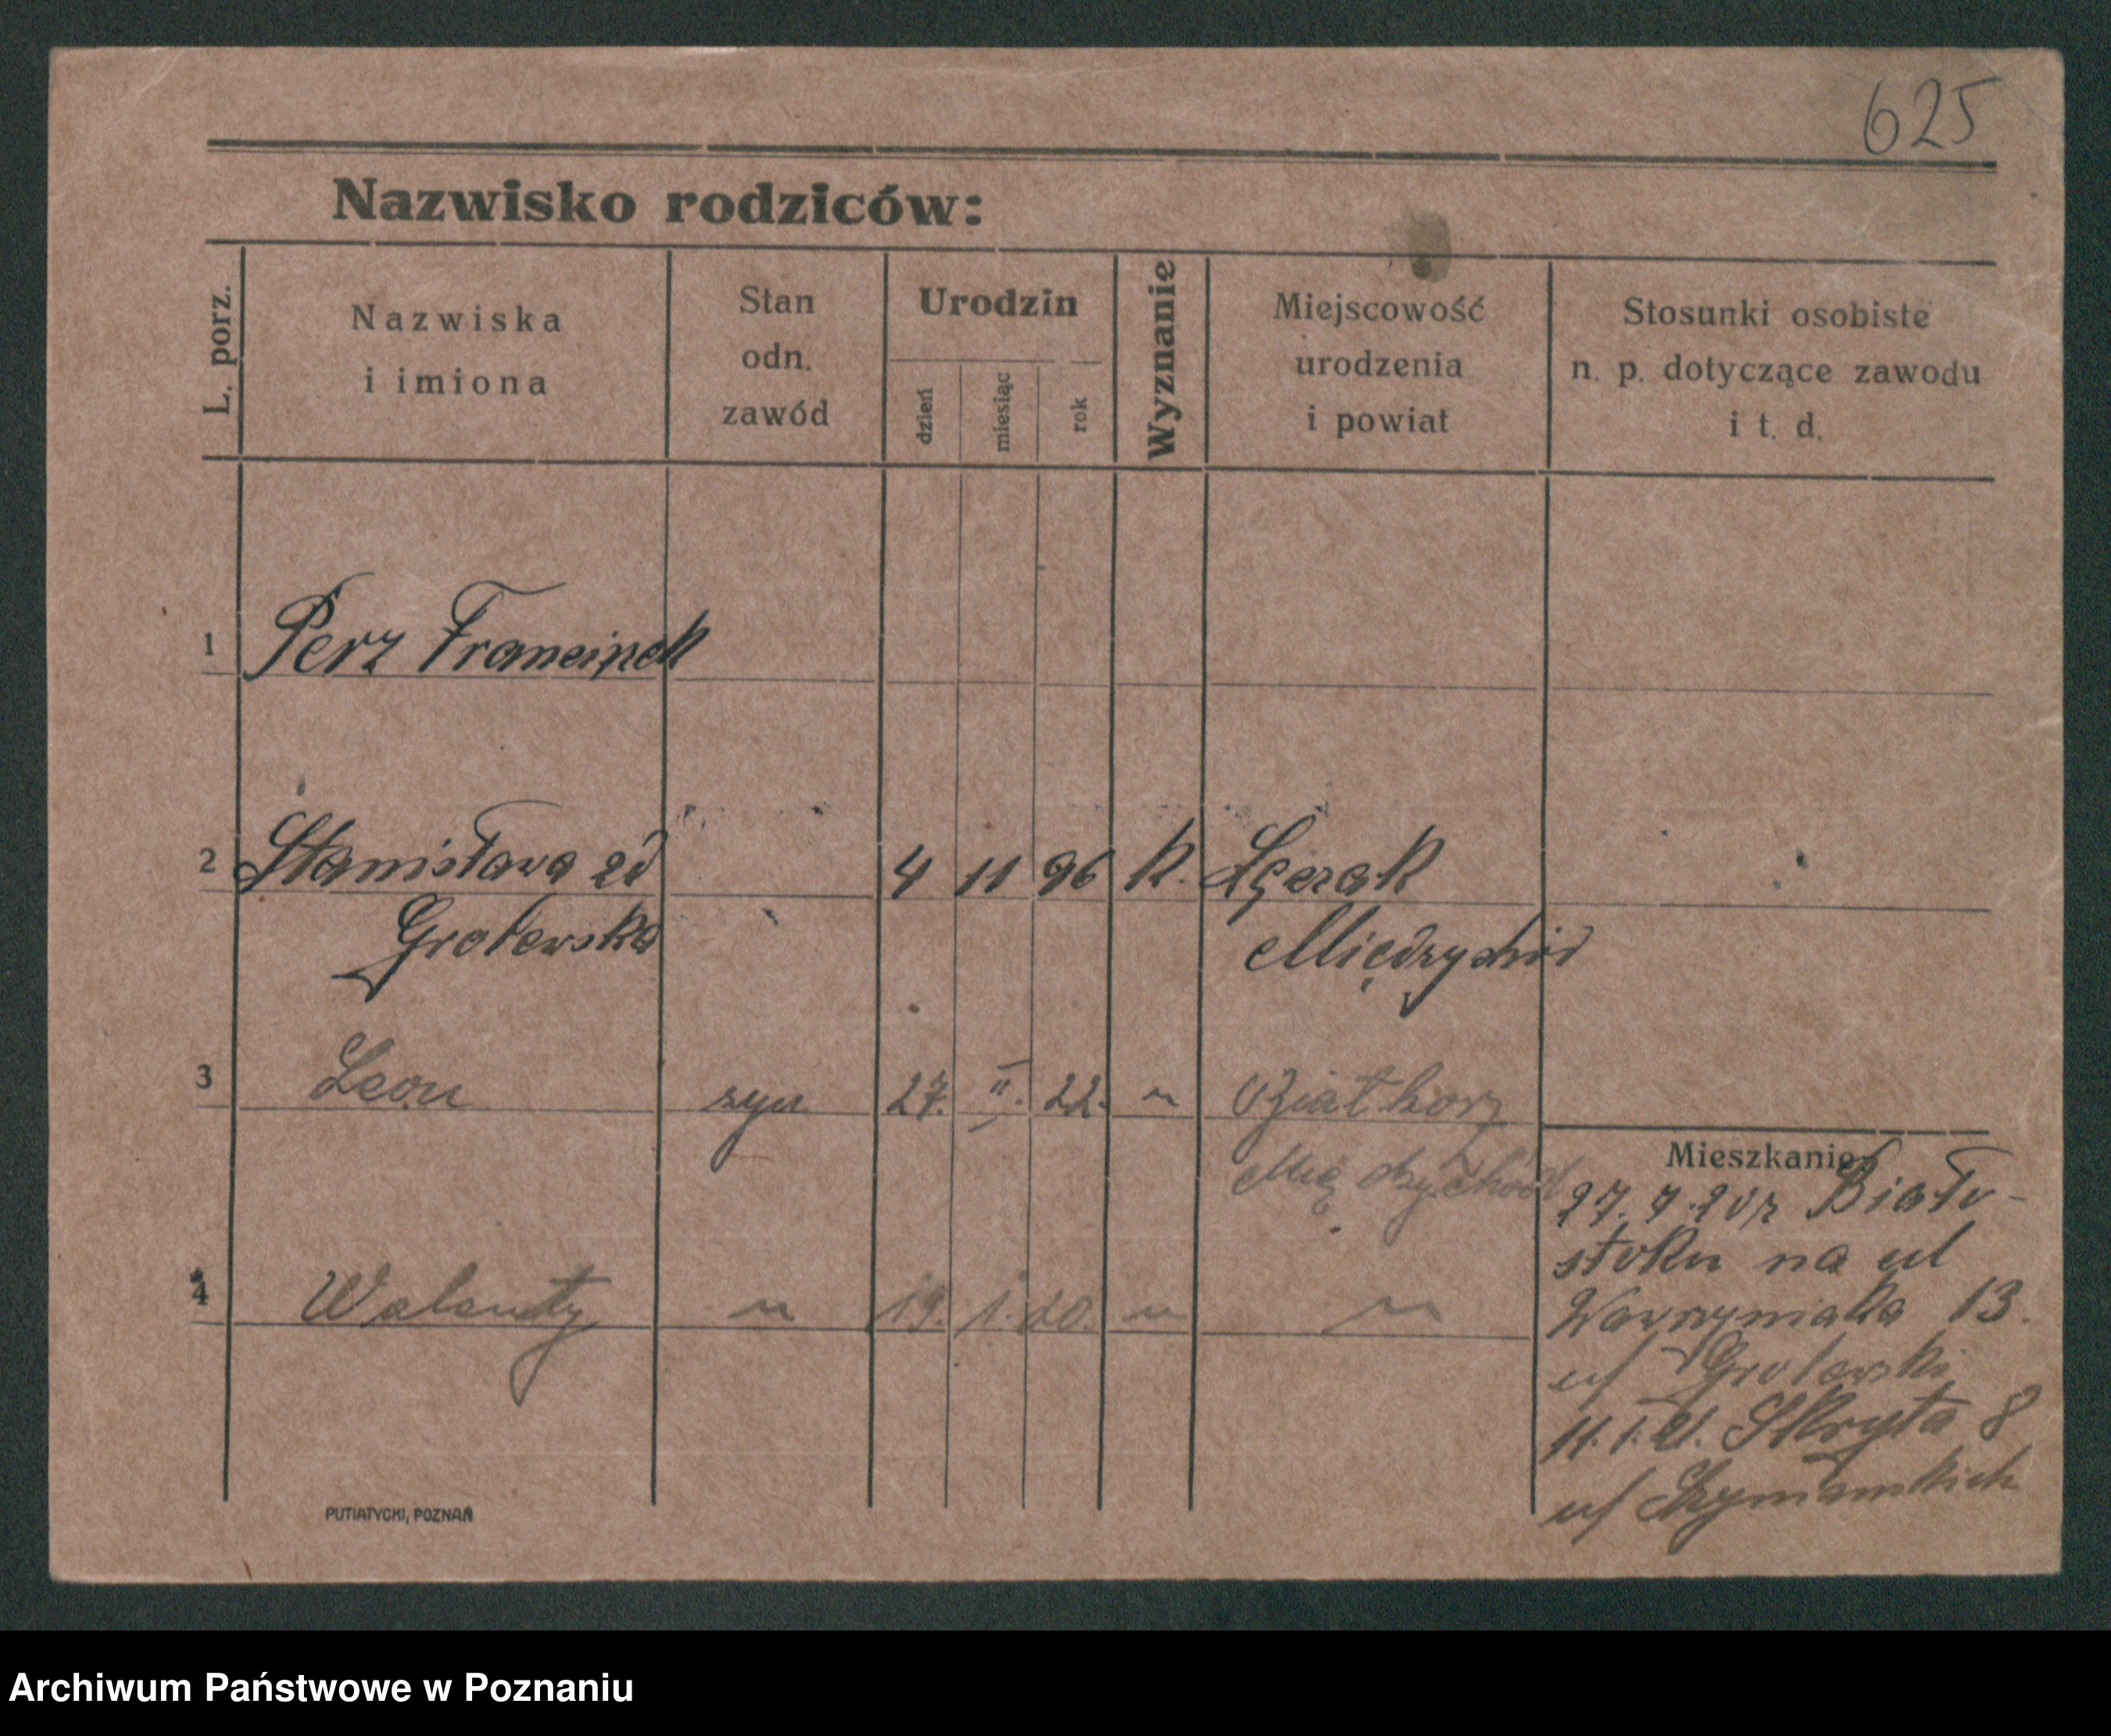 625
Nazwisko rodziców:
L. porz.
Nazwiska
i imiona
Stan
odn.
zawód
Urodzin
dzień
miesiąc
rok
Wyznanie
Miejscowość
urodzenia
i powiat
Stosunki osobiste
n. p. dotyczące zawodu
i t. d.
1 Perz Franciszek
2 Stanisława zd 4 11 96 k.
Grolewska Międzychód
3 Leon syn 27. II. 22. "
Międzychód
4 Walenty " 19. 1. 20. " "
Mieszkanie
27. 7. 20 z Biały-
stoku na ul
Wawrzyniaka 13.
u/ Grolewski
11. 1. 21. Skryta 8
u/
PUTIATYCKI, POZNAŃ
Archiwum Państwowe w Poznaniu